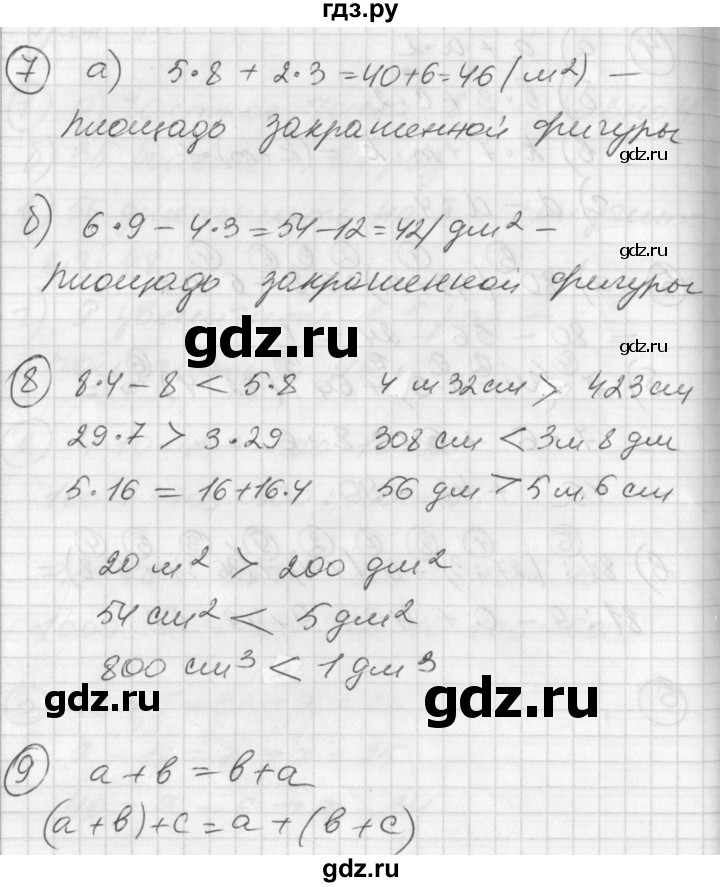 гдз.ру
7 а) 5·8 + 2·3 = 40+6 = 46 (м2) —
площадь закрашенной фигуры
gdz.ru
б) 6·9 – 4·3 = 54–12 = 42/дм2 –
gdz.ru
площадь закрашенной фигуры
gdz.ru
gdz.ru
8 8·4 – 8 < 5·8 4 м 32 см > 423 см
29·7 > 3·29 308 см < 3 м 8 дм
5·16 = 16+16·4 56 дм > 5 м. 6 см
20 м2 > 200 дм2
54 см2 < 5 дм2
800 см3 < 1 дм3
gdz.ru gdz.ru
9 а + в = в + а
(а + в) + с = а + (в + с)
gdz.ru